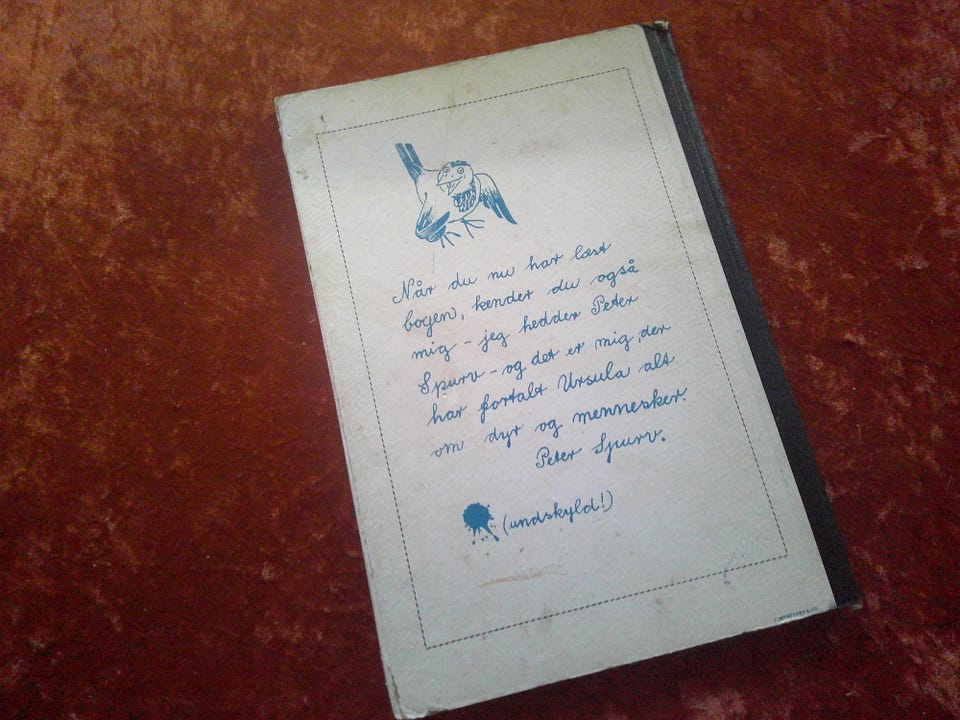 Når du nu har læst
bogen, kender du også
mig - jeg hedder Peter
Spurv - og det er mig, der
har fortalt Ursula alt
om dyr og mennesker.
Peter Spurv.
(undskyld!)